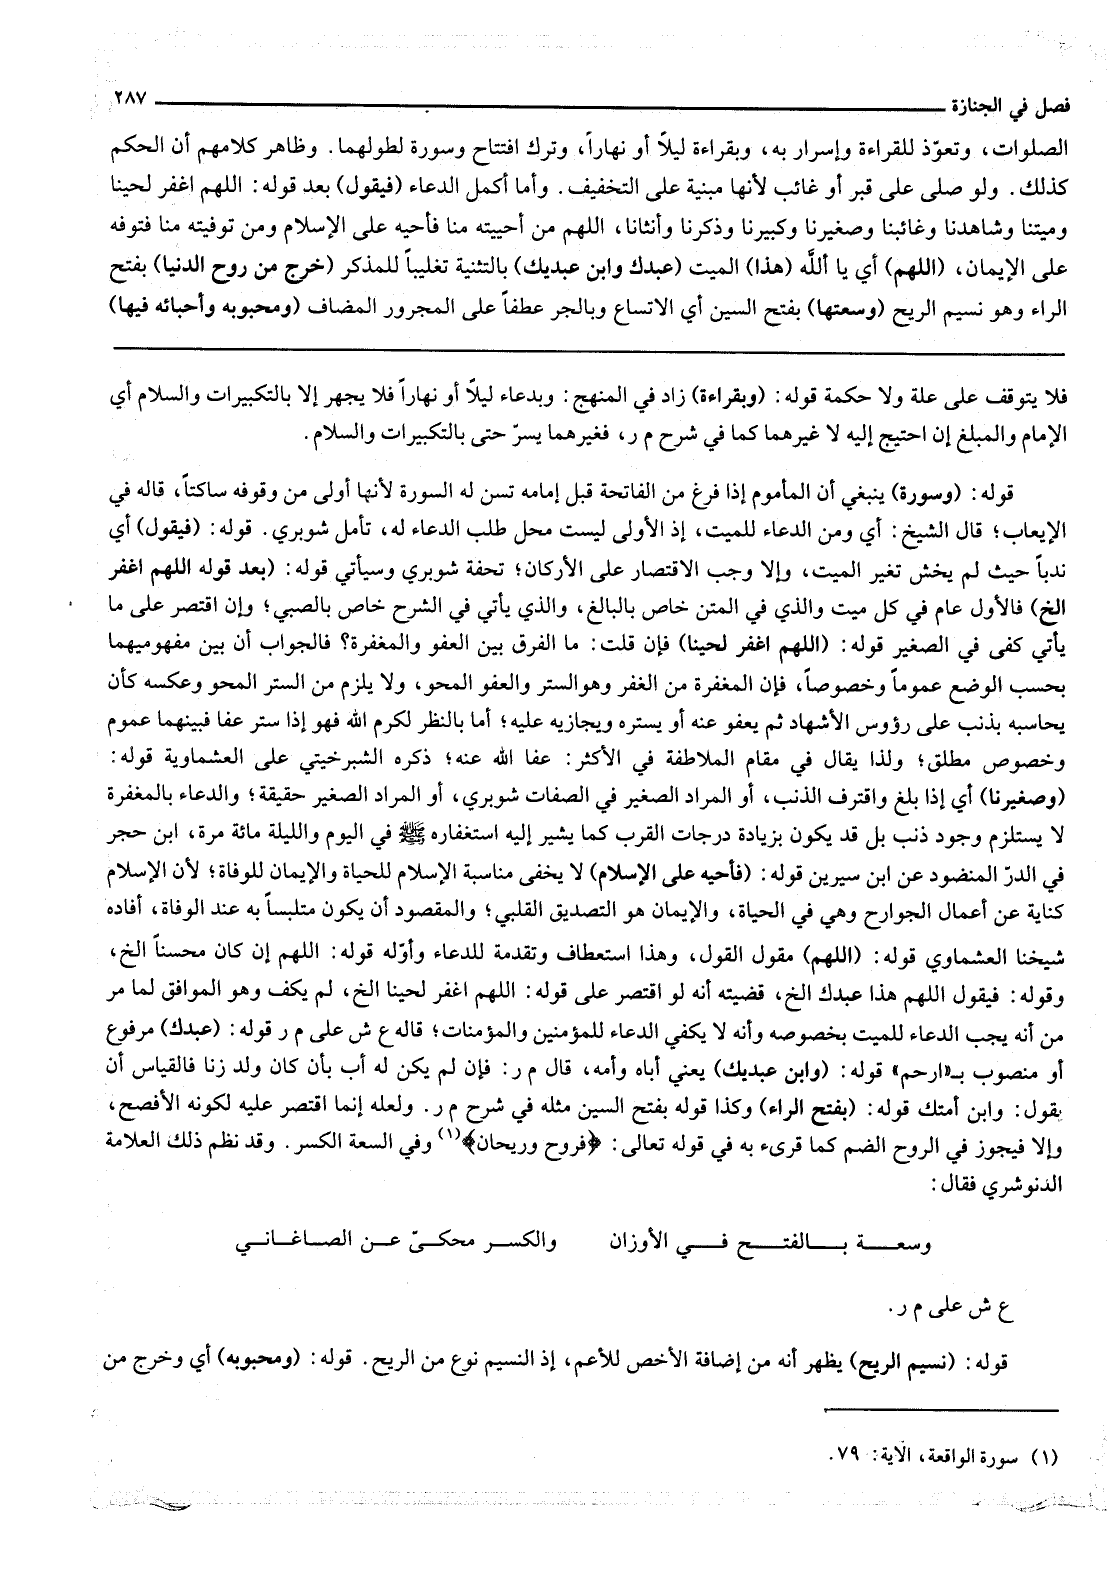 فصل في الجنازة ٢٨٧
الصلوات، وتعوّذ للقراءة وإسرار به، وبقراءة ليلاً أو نهاراً، وترك افتتاح وسورة لطولهما. وظاهر كلامهم أن الحكم
كذلك. ولو صلى على قبر أو غائب لأنها مبنية على التخفيف. وأما أكمل الدعاء (فيقول) بعد قوله: اللهم اغفر لحينا
وميتنا وشاهدنا وغائبنا وصغيرنا وكبيرنا وذكرنا وأنثانا، اللهم من أحييته منا فأحيه على الإسلام ومن توفيته منا فتوفه
على الإيمان، (اللهم) أي يا أللَّه (هذا) الميت (عبدك وابن عبديك) بالتثنية تغليباً للمذكر (خرج من روح الدنيا) بفتح
الراء وهو نسيم الريح (وسعتها) بفتح السين أي الاتساع وبالجر عطفاً على المجرور المضاف (ومحبوبه وأحبائه فيها)
فلا يتوقف على علة ولا حكمة قوله: (وبقراءة) زاد في المنهج: وبدعاء ليلاً أو نهاراً فلا يجهر إلا بالتكبيرات والسلام أي
الإمام والمبلغ إن احتيج إليه لا غيرهما كما في شرح م ر، فغيرهما يسرّ حتى بالتكبيرات والسلام.
قوله: (وسورة) ينبغي أن المأموم إذا فرغ من الفاتحة قبل إمامه تسن له السورة لأنها أولى من وقوفه ساكتاً، قاله في
الإيعاب؛ قال الشيخ: أي ومن الدعاء للميت، إذ الأولى ليست محل طلب الدعاء له، تأمل شوبري. قوله: (فيقول) أي
ندباً حيث لم يخش تغير الميت، وإلا وجب الاقتصار على الأركان؛ تحفة شوبري وسيأتي قوله: (بعد قوله اللهم اغفر
الخ) فالأول عام في كل ميت والذي في المتن خاص بالبالغ، والذي يأتي في الشرح خاص بالصبي؛ وإن اقتصر على ما
يأتي كفى في الصغير قوله: (اللهم اغفر لحينا) فإن قلت: ما الفرق بين العفو والمغفرة؟ فالجواب أن بين مفهوميهما
بحسب الوضع عموماً وخصوصاً، فإن المغفرة من الغفر وهوالستر والعفو المحو، ولا يلزم من الستر المحو وعكسه كأن
يحاسبه بذنب على رؤوس الأشهاد ثم يعفو عنه أو يستره ويجازيه عليه؛ أما بالنظر لكرم الله فهو إذا ستر عفا فبينهما عموم
وخصوص مطلق؛ ولذا يقال في مقام الملاطفة في الأكثر: عفا الله عنه؛ ذكره الشبرخيتي على العشماوية قوله:
(وصغيرنا) أي إذا بلغ واقترف الذنب، أو المراد الصغير في الصفات شوبري، أو المراد الصغير حقيقة؛ والدعاء بالمغفرة
لا يستلزم وجود ذنب بل قد يكون بزيادة درجات القرب كما يشير إليه استغفاره ﷺ في اليوم والليلة مائة مرة، ابن حجر
في الدرّ المنضود عن ابن سيرين قوله: (فأحيه على الإسلام) لا يخفى مناسبة الإسلام للحياة والإيمان للوفاة؛ لأن الإسلام
كناية عن أعمال الجوارح وهي في الحياة، والإيمان هو التصديق القلبي؛ والمقصود أن يكون متلبساً به عند الوفاة، أفاده
شيخنا العشماوي قوله: (اللهم) مقول القول، وهذا استعطاف وتقدمة للدعاء وأوّله قوله: اللهم إن كان محسناً الخ،
وقوله: فيقول اللهم هذا عبدك الخ، قضيته أنه لو اقتصر على قوله: اللهم اغفر لحينا الخ، لم يكف وهو الموافق لما مر
من أنه يجب الدعاء للميت بخصوصه وأنه لا يكفي الدعاء للمؤمنين والمؤمنات؛ قاله ع ش على م ر قوله: (عبدك) مرفوع
أو منصوب بـ«ارحم» قوله: (وابن عبديك) يعني أباه وأمه، قال م ر: فإن لم يكن له أب بأن كان ولد زنا فالقياس أن
يقول: وابن أمتك قوله: (بفتح الراء) وكذا قوله بفتح السين مثله في شرح م ر. ولعله إنما اقتصر عليه لكونه الأفصح،
وإلا فيجوز في الروح الضم كما قرىء به في قوله تعالى: ﴿فروح وريحان﴾(١) وفي السعة الكسر. وقد نظم ذلك العلامة
الدنوشري فقال:
وسعـــة بـــالفتـــح فـــي الأوزان والكســر محكـيّ عــن الصــاغــانــي
ع ش على م ر.
قوله: (نسيم الريح) يظهر أنه من إضافة الأخص للأعم، إذ النسيم نوع من الريح. قوله: (ومحبوبه) أي وخرج من
(١) سورة الواقعة، الآية: ٧٩.